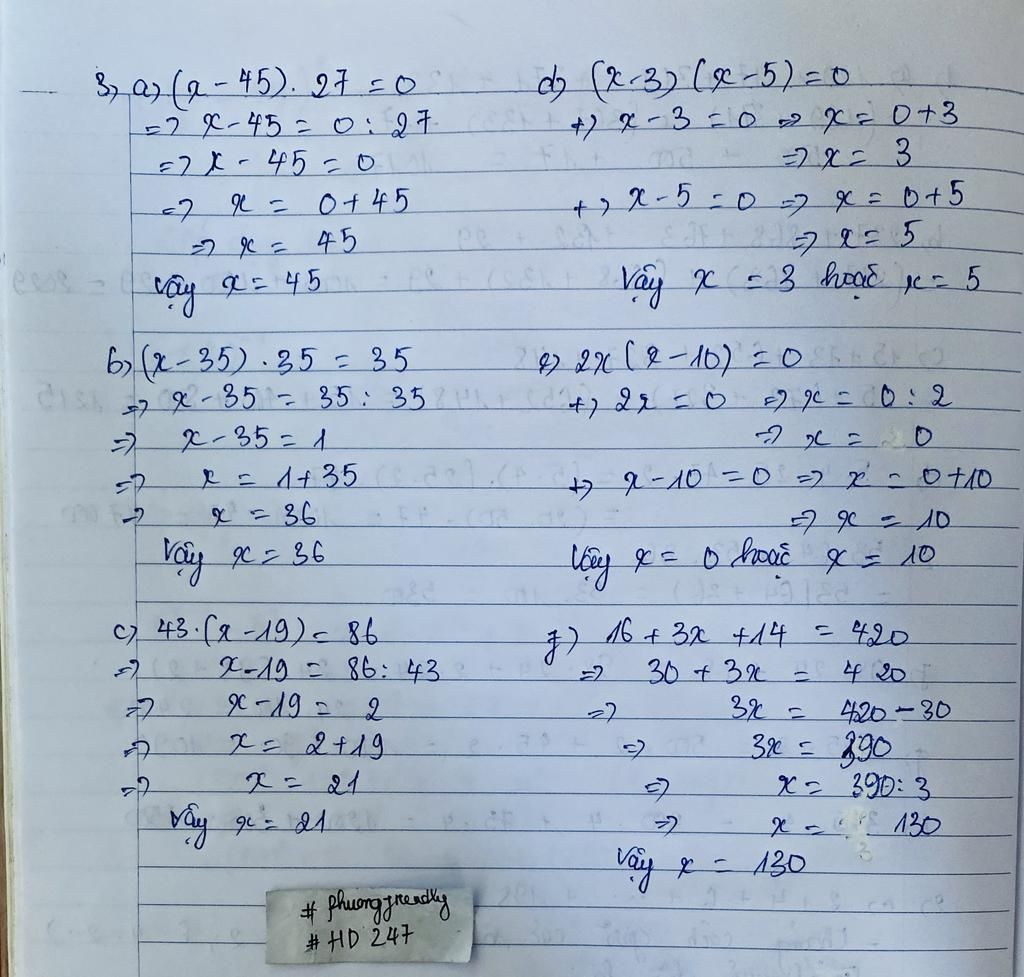 3, a, (x - 45) . 27 = 0
=> x - 45 = 0 : 27
=> x - 45 = 0
=> x = 0 + 45
=> x = 45
Vậy x = 45
b, (x - 35) . 35 = 35
=> x - 35 = 35 : 35
=> x - 35 = 1
=> x = 1 + 35
=> x = 36
Vậy x = 36
c, 43 . (x - 19) = 86
=> x - 19 = 86 : 43
=> x - 19 = 2
=> x = 2 + 19
=> x = 21
Vậy x = 21
d, (x - 3) (x - 5) = 0
+, x - 3 = 0 => x = 0 + 3
=> x = 3
+, x - 5 = 0 => x = 0 + 5
=> x = 5
Vậy x = 3 hoặc x = 5
e, 2x (x - 10) = 0
+, 2x = 0 => x = 0 : 2
=> x = 0
+, x - 10 = 0 => x = 0 + 10
=> x = 10
Vậy x = 0 hoặc x = 10
f, 16 + 3x + 14 = 420
=> 30 + 3x = 420
=> 3x = 420 - 30
=> 3x = 390
=> x = 390 : 3
=> x = 130
Vậy x = 130
# phuongfriendly
# HD 247